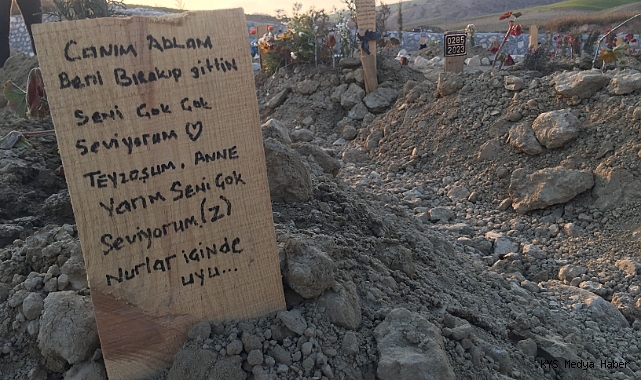 CANIM ABLAM
Beni Bırakıp gittin
Seni Çok Çok
Seviyorum ♡
TEYZOŞUM, ANNE
Yarım Seni Çok
Seviyorum. (Z)
Nurlar içinde
uyu...
0285
2023
KYS Medya Haber